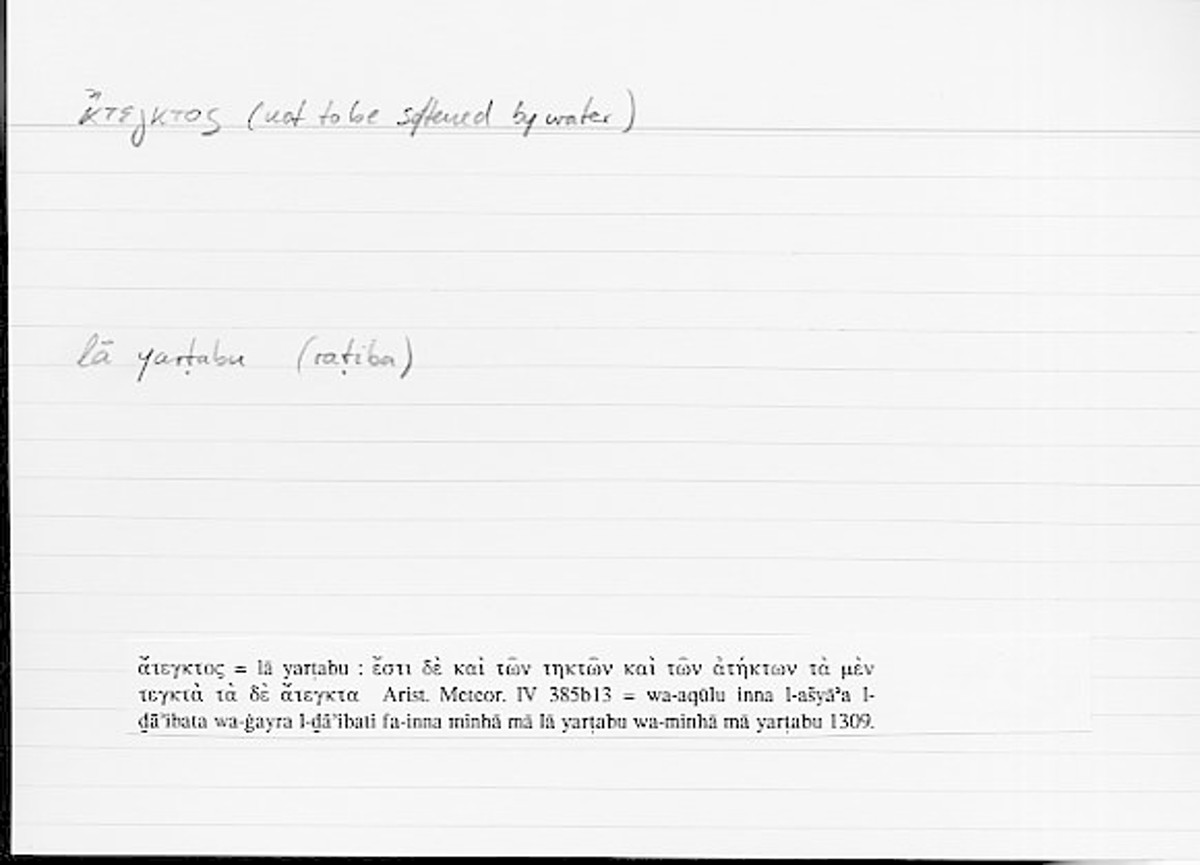 ἄτεγκτος (not to be softened by water)
lā yarṭabu (raṭiba)
ἄτεγκτος = lā yarṭabu : ἔστι δὲ καὶ τῶν τηκτῶν καὶ τῶν ἀτήκτων τὰ μὲν
τεγκτὰ τὰ δὲ ἄτεγκτα Arist. Meteor. IV 385b13 = wa-aqūlu inna l-ašyāʾa l-
ḏāʾibata wa-ġayra l-ḏāʾibati fa-inna minhā mā lā yarṭabu wa-minhā mā yarṭabu 1309.